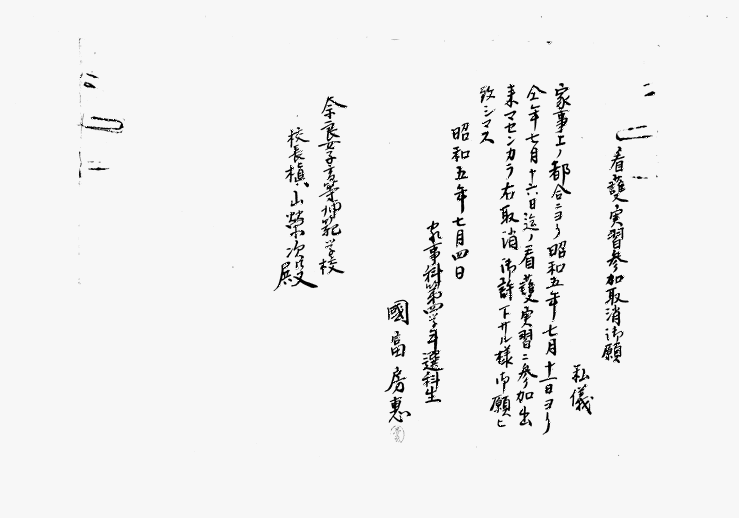 看護実習参加取消御願
私儀
家事上ノ都合ニヨリ昭和五年七月十一日ヨリ
仝年七月十六日迄ノ看護実習ニ参加出
来マセンカラ右取消御許下サル様御願ヒ
致シマス
昭和五年七月四日
家事科第四学年選科生
國富房惠
奈良女子高等師範学校
校長槇山榮次殿